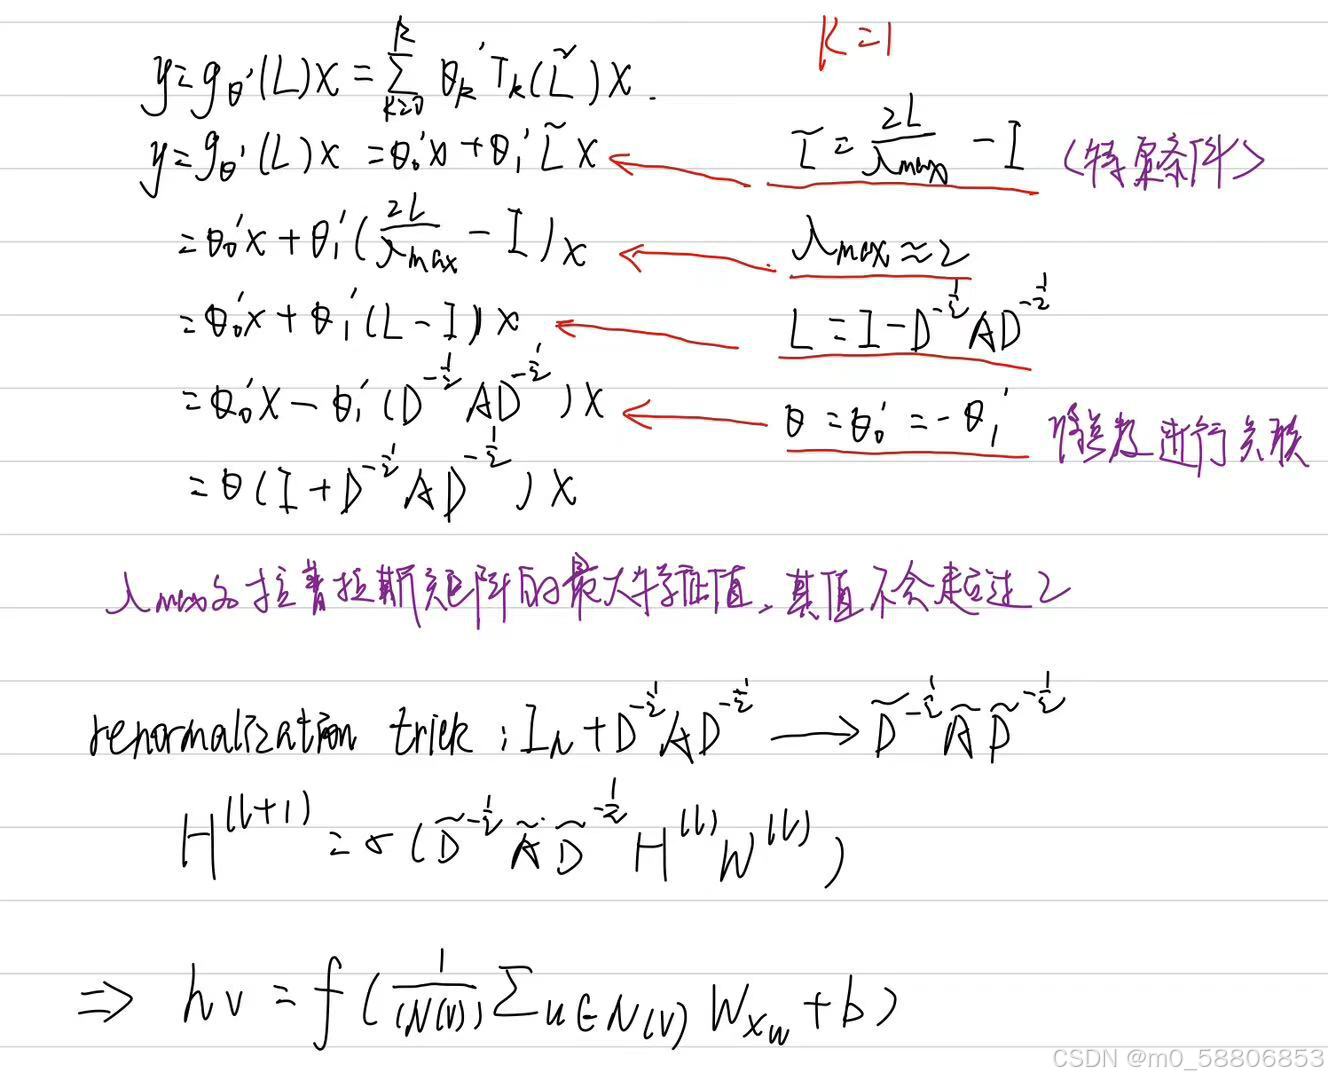 y = g_θ'(L)x = Σ_{k=0}^{k} θ_k' T_k(L̃)x.
K=1
y = g_θ'(L)x = θ_0'x + θ_1' L̃ x
L̃ = 2L/λmax - I (特殊条件)
= θ_0'x + θ_1'(2L/λmax - I)x
λmax ≈ 2
= θ_0'x + θ_1'(L - I)x
L = I - D^{-1/2}AD^{-1/2}
= θ_0'x - θ_1'(D^{-1/2}AD^{-1/2})x
θ = θ_0' = -θ_1' 将参数进行关联
= θ(I + D^{-1/2}AD^{-1/2})x
λmax为拉普拉斯矩阵的最大特征值,其值不会超过2
renormalization trick: I_N + D^{-1/2}AD^{-1/2} → D̃^{-1/2}ÃD̃^{-1/2}
H^{(l+1)} = σ(D̃^{-1/2}ÃD̃^{-1/2}H^{(l)}W^{(l)})
⇒ hv = f(1/|N(v)| Σ_{u∈N(v)} Wx_u + b)
CSDN @m0_58806853